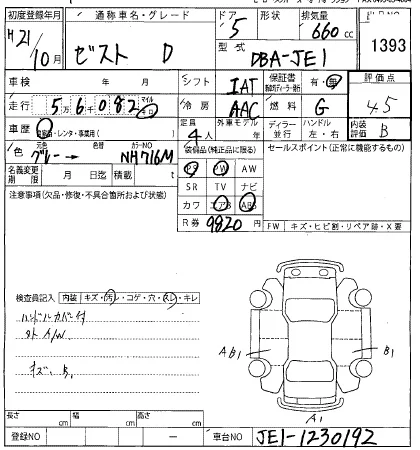 初度登録年月 通称車名・グレード ドア 形状 排気量
H21/10月 ゼスト D 5 660cc
型式 DBA-JE1 1393
車検 年 月 シフト IAT 保証書 有・無 評価点
走行 5万6千082 マイル キロ 冷房 AAC 燃料 G 4.5
車歴 自家用・レンタ・事業用( ) 定員 4人 外車モデル 年 ディラー 並行 ハンドル 左・右 内装評価 B
色 元色 グレー → 色替 カラーNO NH716M 装備品(純正品に限る) セールスポイント(正常に機能するもの)
名義変更期限 月 日迄 積載 t PS PW AW
注意事項(欠品・修復・不具合箇所および状態) SR TV ナビ
カワ エアB AB
R券 9820円 FW キズ・ヒビ割・リペア跡・X要
検査員記入 内装 キズ・汚レ・コゲ・穴・スレ・キレ
ハンドルカバー付
社外 A/W
キズ、B1
AB1 B1
A1
長さ cm 幅 cm 高さ cm
登録NO ー 車台NO JE1-1230192